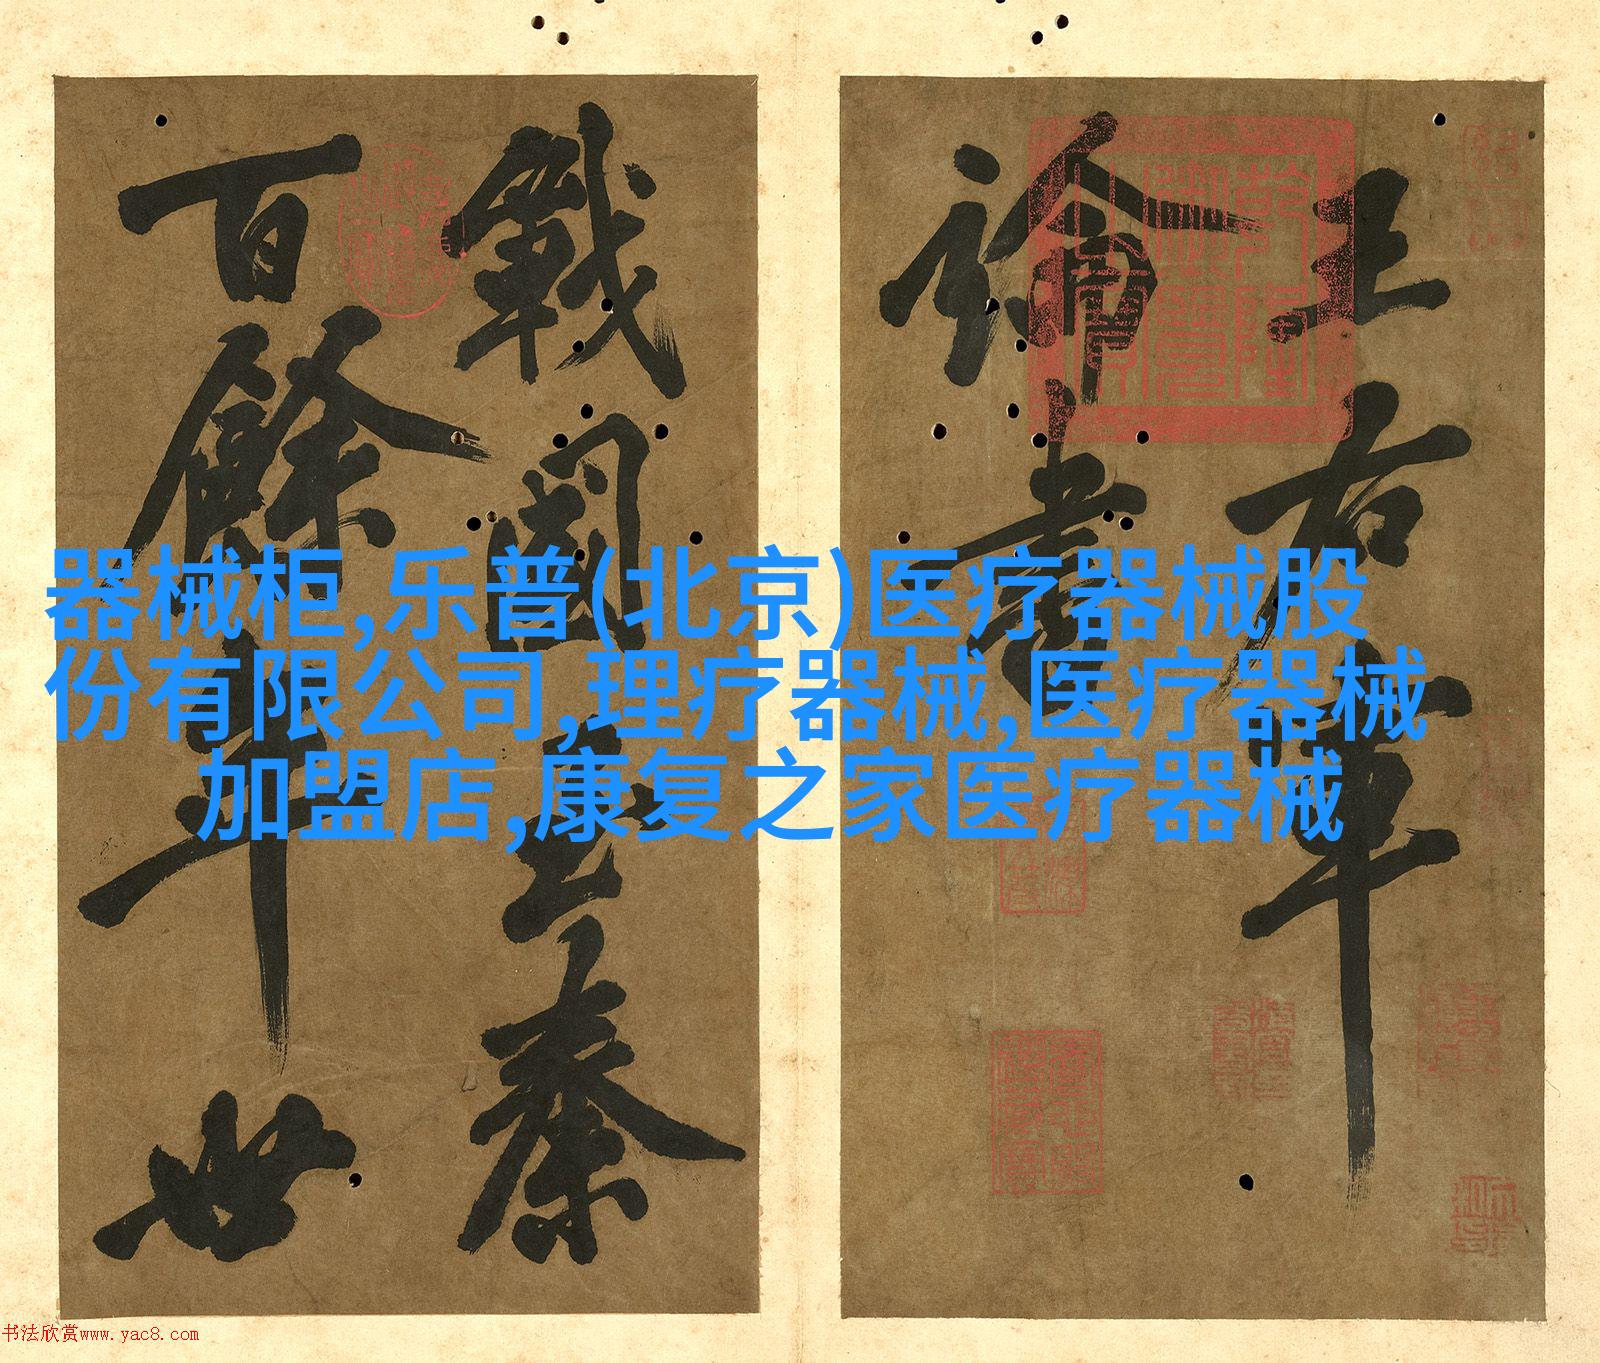 王右軍
論書
戰國至秦
百餘年世
器械柜,乐普(北京)医疗器械股
份有限公司,理疗器械,医疗器械
加盟店,康复之家医疗器械
书法欣赏www.yac8.com